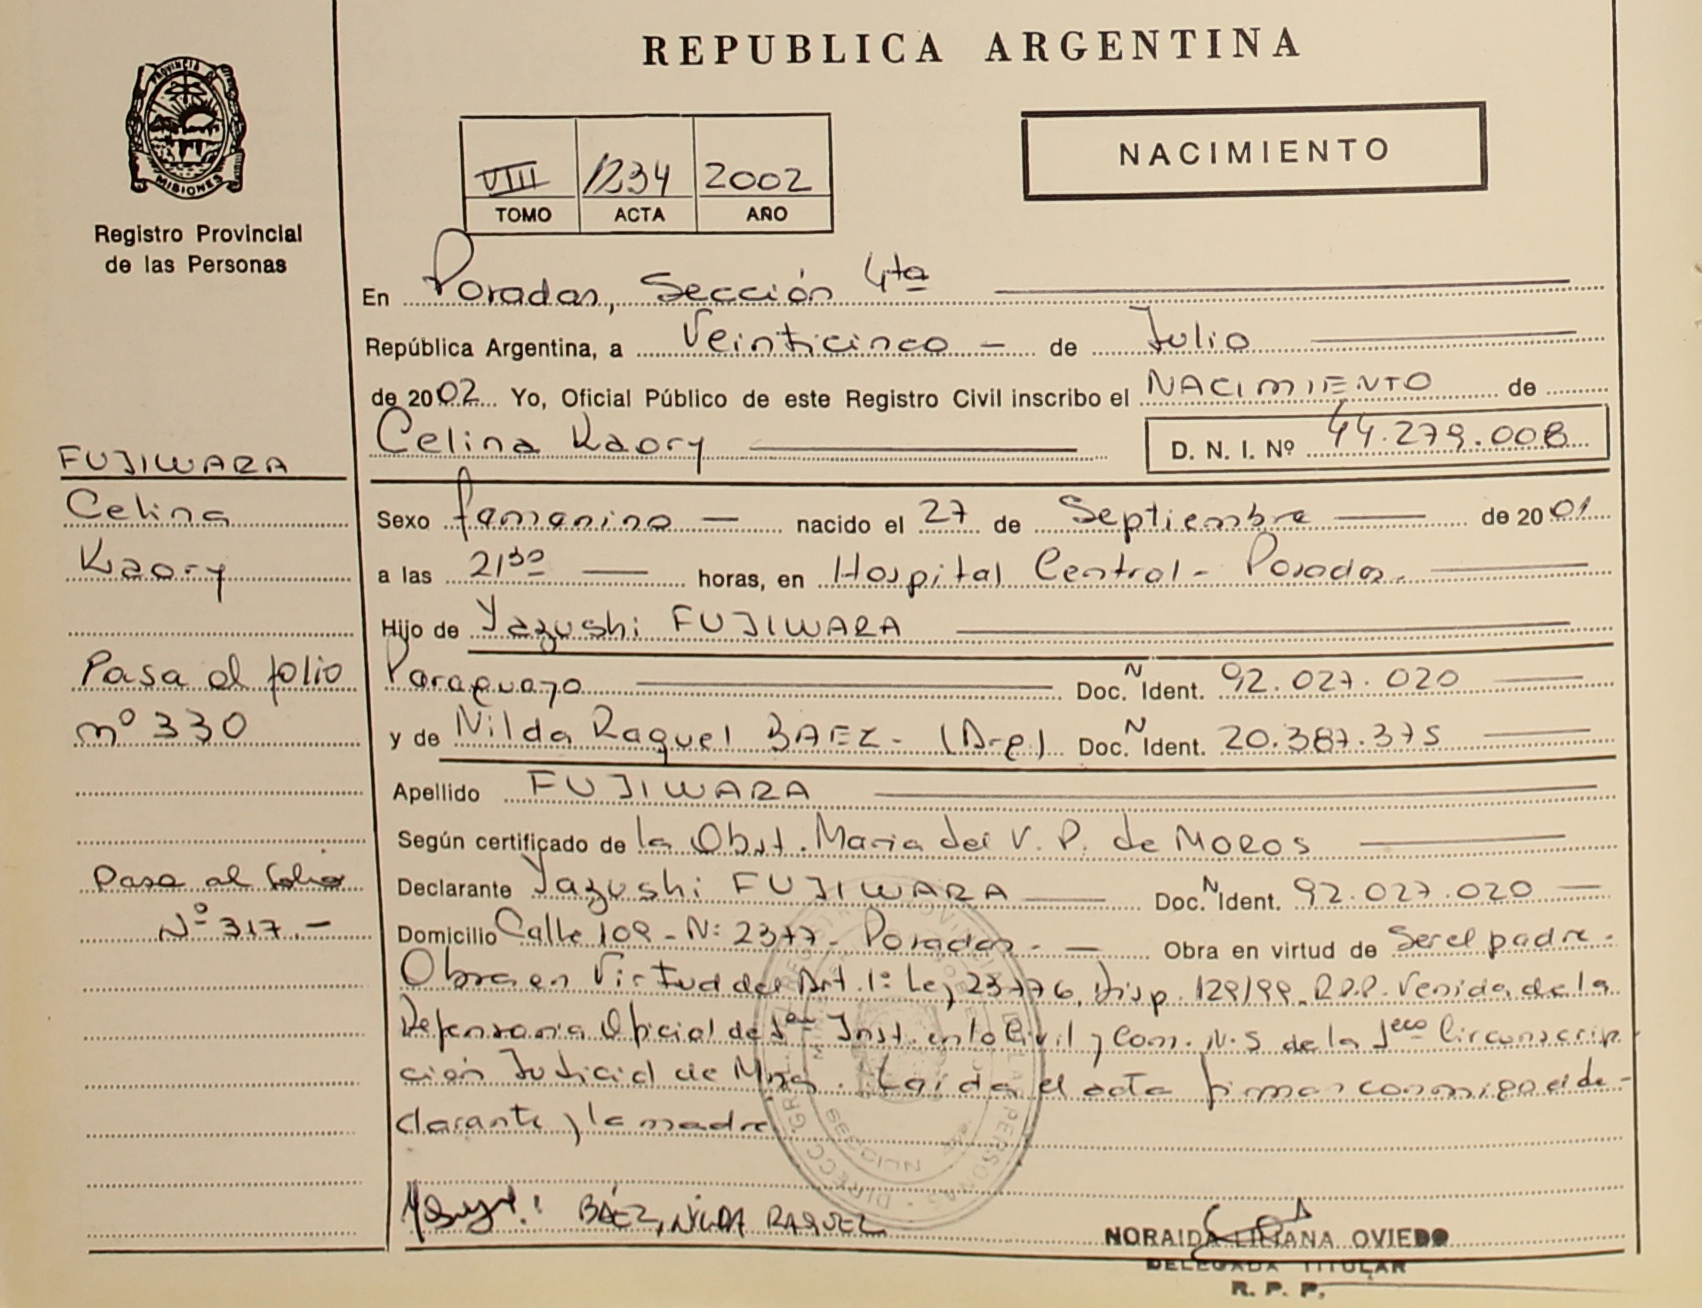 REPUBLICA ARGENTINA
PROVINCIA DE
MISIONES
Registro Provincial
de las Personas
VIII 1234 2002
TOMO ACTA AÑO
NACIMIENTO
En Posadas, Sección 4ta
República Argentina, a Veinticinco - de Julio
de 2002 Yo, Oficial Público de este Registro Civil inscribo el NACIMIENTO de
Celina Kaory D. N. I. Nº 44.279.008
FUJIWARA
Celina
Kaory
Pasa al folio
nº 330
Pasa al folio
Nº 317.-
Sexo femenino - nacido el 27 de Septiembre de 2001
a las 21³⁰ horas, en Hospital Central - Posadas.
Hijo de Yazushi FUJIWARA
Paraguayo Doc. N Ident. 92.027.020
y de Nilda Raquel BAEZ - (Arg) Doc. N Ident. 20.387.375
Apellido FUJIWARA
Según certificado de la Obst. Maria del V. P. de MOROS
Declarante Yazushi FUJIWARA Doc. N Ident. 92.027.020
Domicilio Calle 109 - N: 2377 - Posadas. - Obra en virtud de Ser el padre -
Obra en Virtud del Art. 1º Ley 23776, Disp. 129/99. R.P.P. Venida de la
Defensoria Oficial de 1era Inst. en lo Civil y Com. Nº 5 de la 1era Circunscrip
ción Judicial de Mnes. Leída el acta firman conmigo el de-
clarante y la madre
BÁEZ, NILDA RAQUEL
NORAIDA LILIANA OVIEDO
DELEGADA TITULAR
R. P. P.